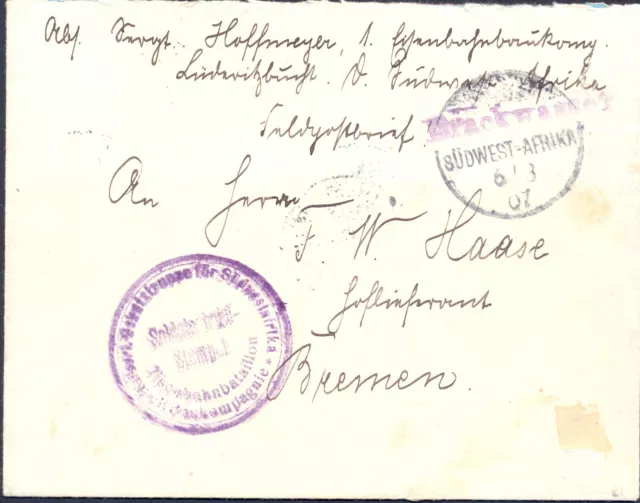 Abs. Sergt. Hoffmeyer, 1. Eisenbahnbaukomp.
Lüderitzbucht. D. Südwest Afrika
Feldpostbrief
Brackwasser
SÜDWEST-AFRIKA
6/3
07
An Herrn
F. W. Haase
Hoflieferant
Bremen.
Kaiserl. Schutztruppe für Südwestafrika
Soldatenbrief-
Stempel
Eisenbahnbataillon